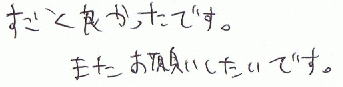 すごく良かったです。
またお願いしたいです。